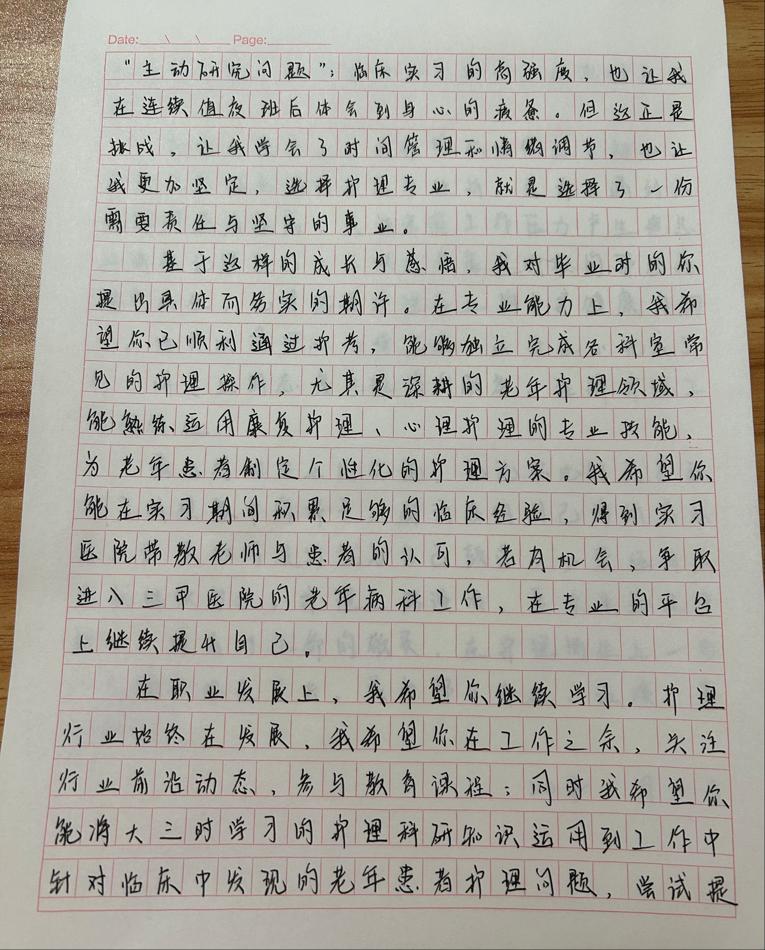 Date: \ \ Page:
“主动研究问题”；临床实习的高强度，也让我
在连续值夜班后体会到身心的疲惫。但这正是
挑战，让我学会了时间管理和情绪调节，也让
我更加坚定，选择护理专业，就是选择了一份
需要责任与坚守的事业。
基于这样的成长与感悟，我对毕业时的你
提出具体而务实的期许。在专业能力上，我希
望你已顺利通过护考，能够独立完成各科室常
见的护理操作，尤其是深耕的老年护理领域，
能熟练运用康复护理、心理护理的专业技能，
为老年患者制定个性化的护理方案。我希望你
能在实习期间积累足够的临床经验，得到实习
医院带教老师与患者的认可，若有机会，争取
进入三甲医院的老年病科工作，在专业的平台
上继续提升自己。
在职业发展上，我希望你继续学习。护理
行业始终在发展，我希望你在工作之余，关注
行业前沿动态，参与教育课程；同时我希望你
能将大三时学习的护理科研知识运用到工作中
针对临床中发现的老年患者护理问题，尝试提